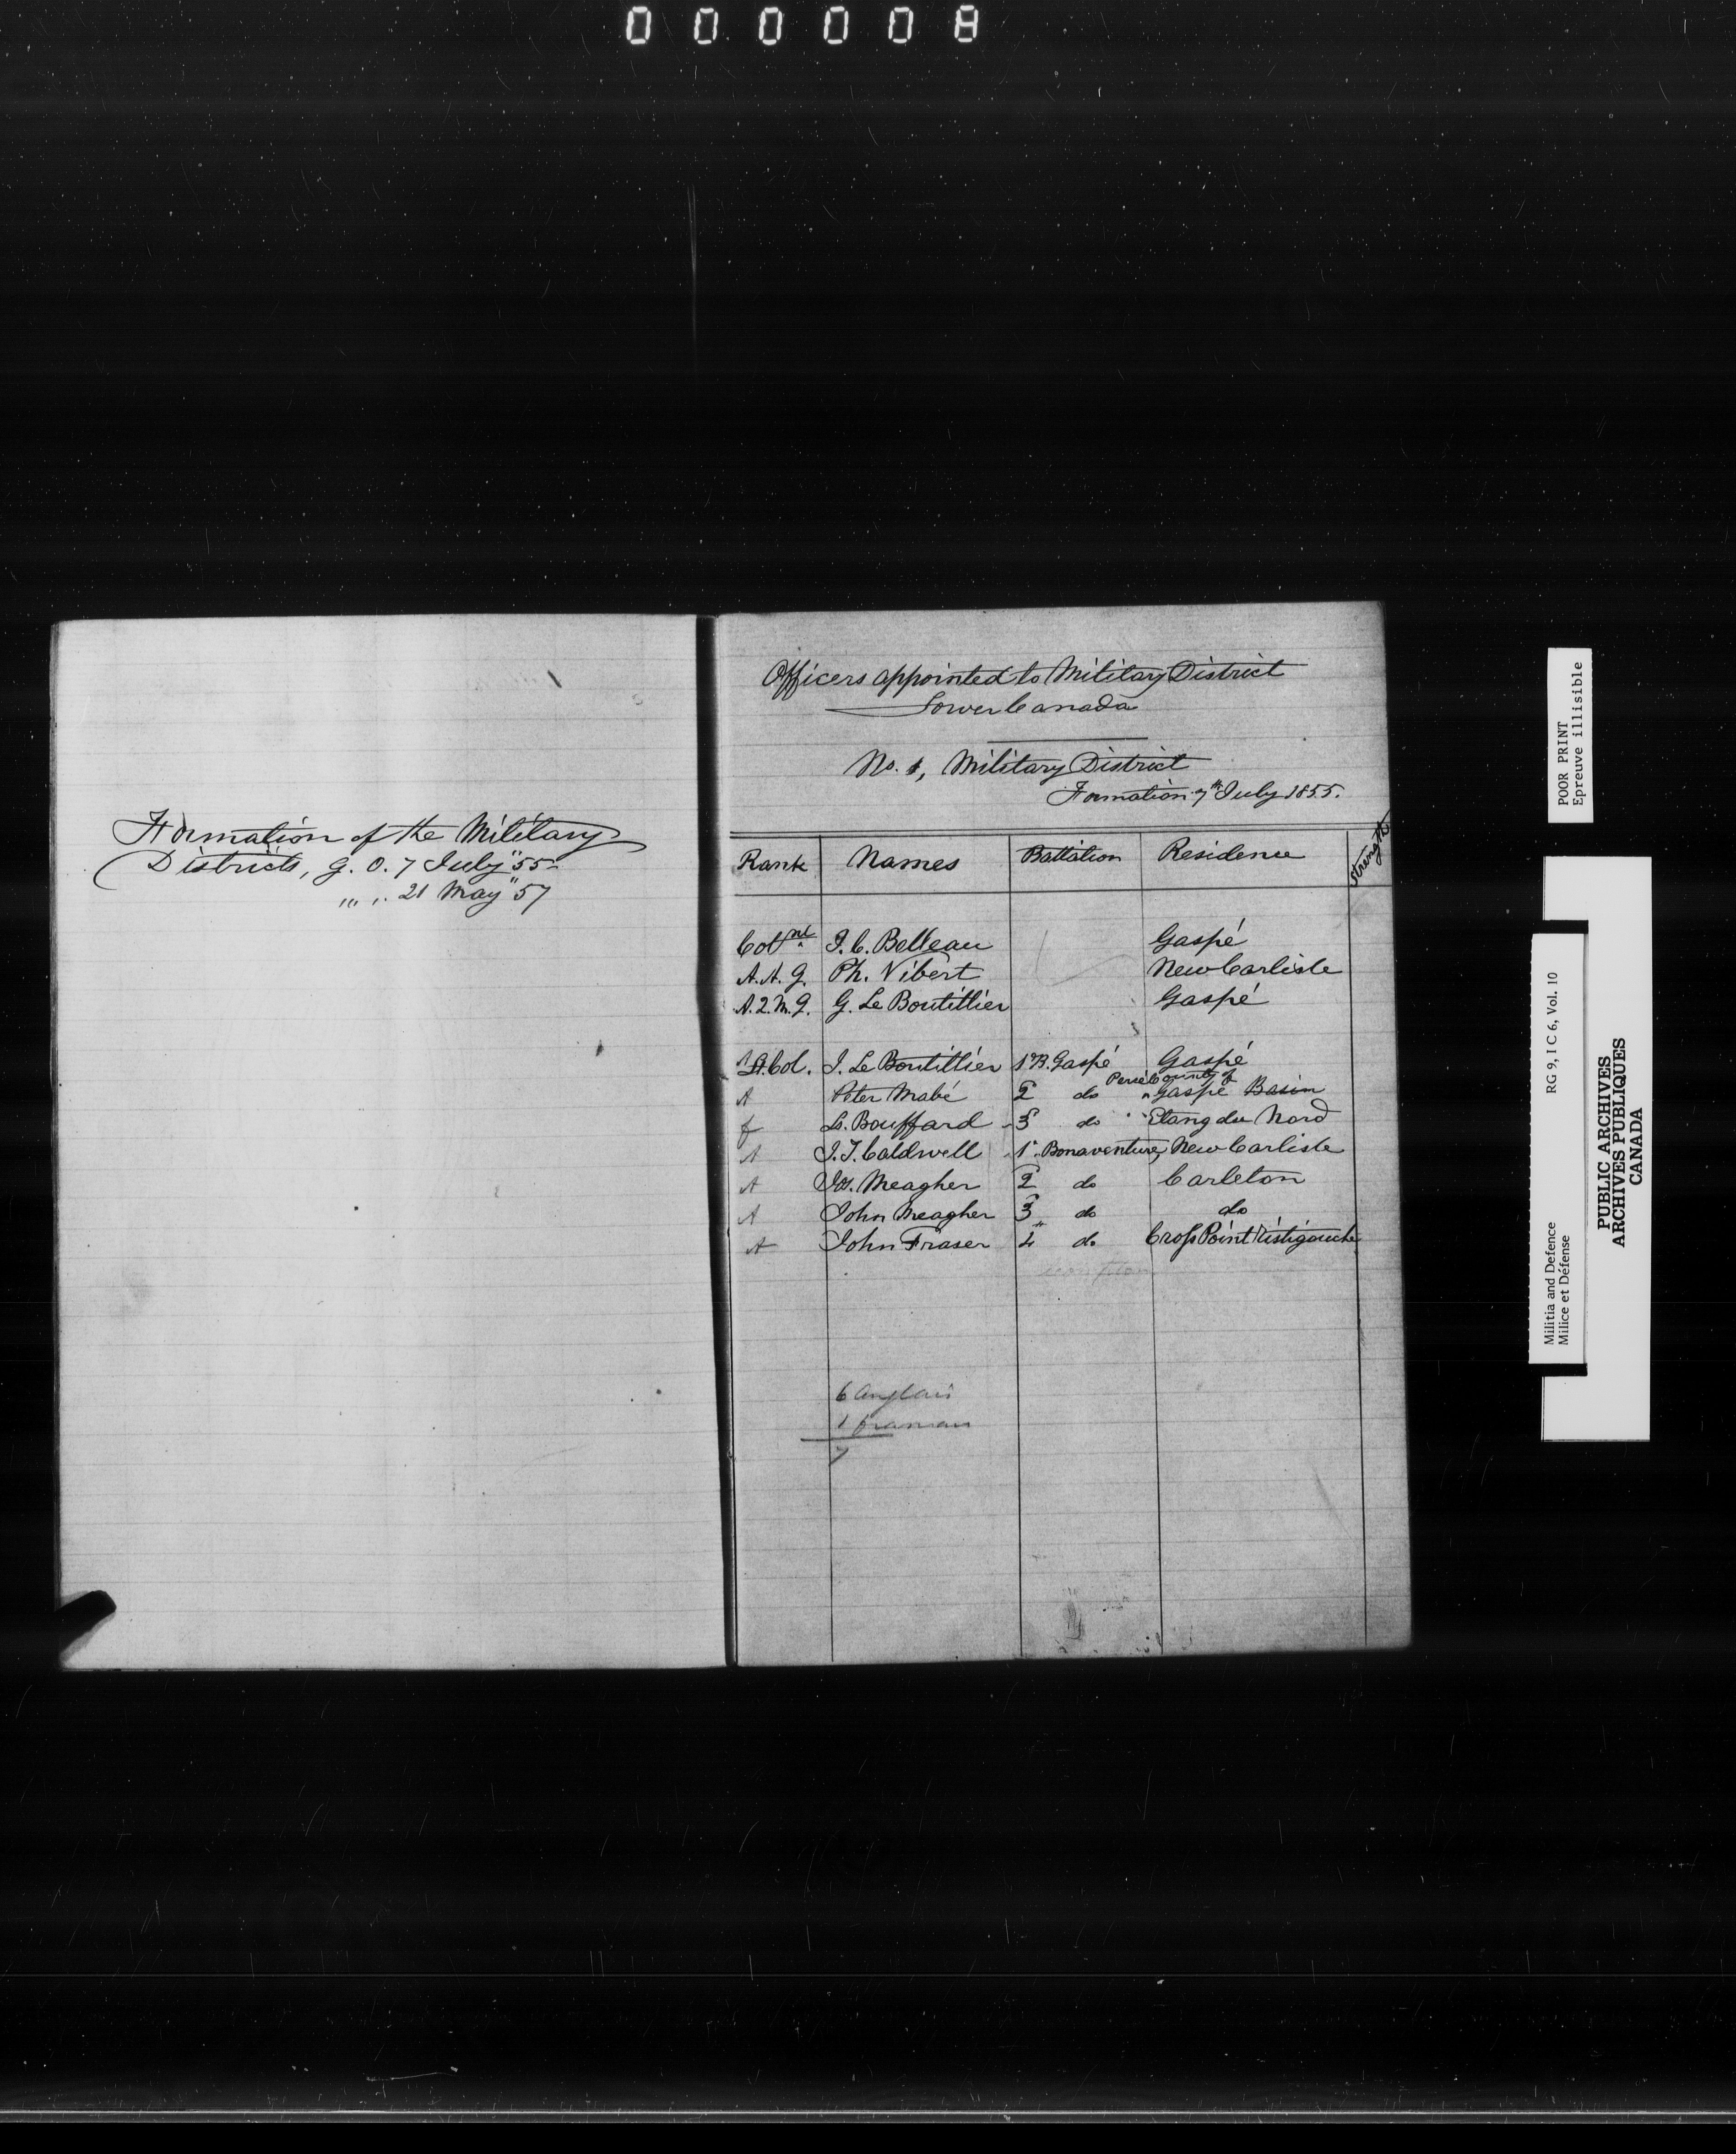 000008
Formation of the Military
Districts, G. O. 7 July "55
"" ". 21 May "57
Officers appointed to Military District
Lower Canada
No. 1, Military District
Formation 7th July 1855.
Rank Names Battalion Residence Strength
Colnel J. C. Belleau Gaspé
A. A. G. Ph. Vibert New Carlisle
A. Q. M. G. G. Le Boutillier Gaspé
Lt. Col. J. Le Boutillier 1st B. Gaspé Gaspé
Percé County of
A Peter Mabé 2 do " Gaspé Basin
f L. Bouffard 3 do " Etang du Nord
A J. T. Caldwell 1st Bonaventure, New Carlisle
A Jos. Meagher 2 do Carleton
A John Meagher 3 do do
A John Fraser 4 do Cross Point Ristigouche
6 Anglais
1 francais
7
POOR PRINT
Epreuve illisible
Militia and Defence RG 9, I C 6, Vol. 10
Milice et Défense
PUBLIC ARCHIVES
ARCHIVES PUBLIQUES
CANADA